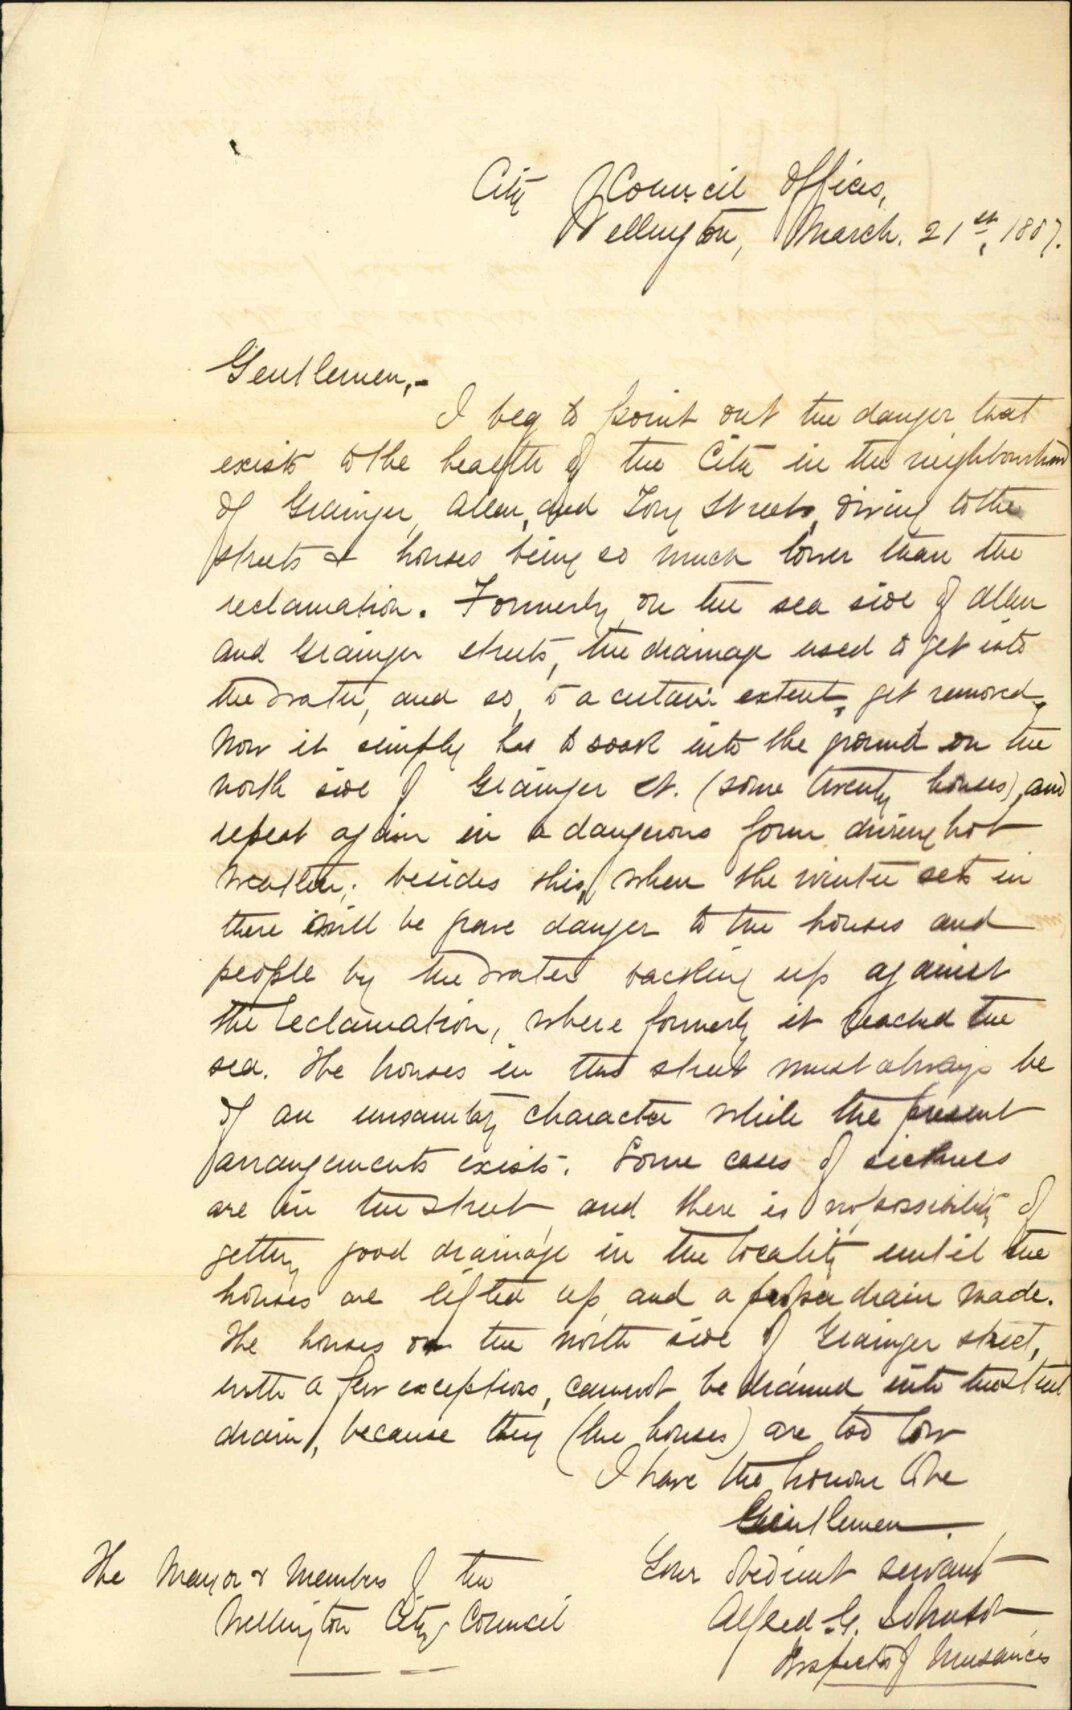 City Council Offices,
Wellington, March. 21st, 1887.
Gentlemen,-
I beg to point out the danger that
exists to the health of the City in the neighbourhood
of Grainger, Allen, and Tory Streets, owing to the
streets & houses being so much lower than the
reclamation. Formerly, on the sea side of Allen
and Grainger streets, the drainage used to get into
the water, and so, to a certain extent, get removed.
Now it simply has to soak into the ground on the
north side of Grainger St. (some twenty houses), and
repeat again in a dangerous form during hot
weather; besides this, when the winter sets in
there will be grave danger to the houses and
people by the water backing up against
the reclamation, where formerly it reached the
sea. The houses in this street must always be
of an unsanitary character while the present
arrangements exists. Some cases of sickness
are in the street, and there is no possibility of
getting good drainage in the locality until the
houses are lifted up, and a proper drain made.
The houses on the north side of Grainger street,
with a few exceptions, cannot be drained into the street
drain, because they (the houses) are too low
I have the honour to be
Gentlemen
Your obedient servant
Alfred G. Johnson
Inspector of Nuisances
The Mayor & Members of the
Wellington City Council